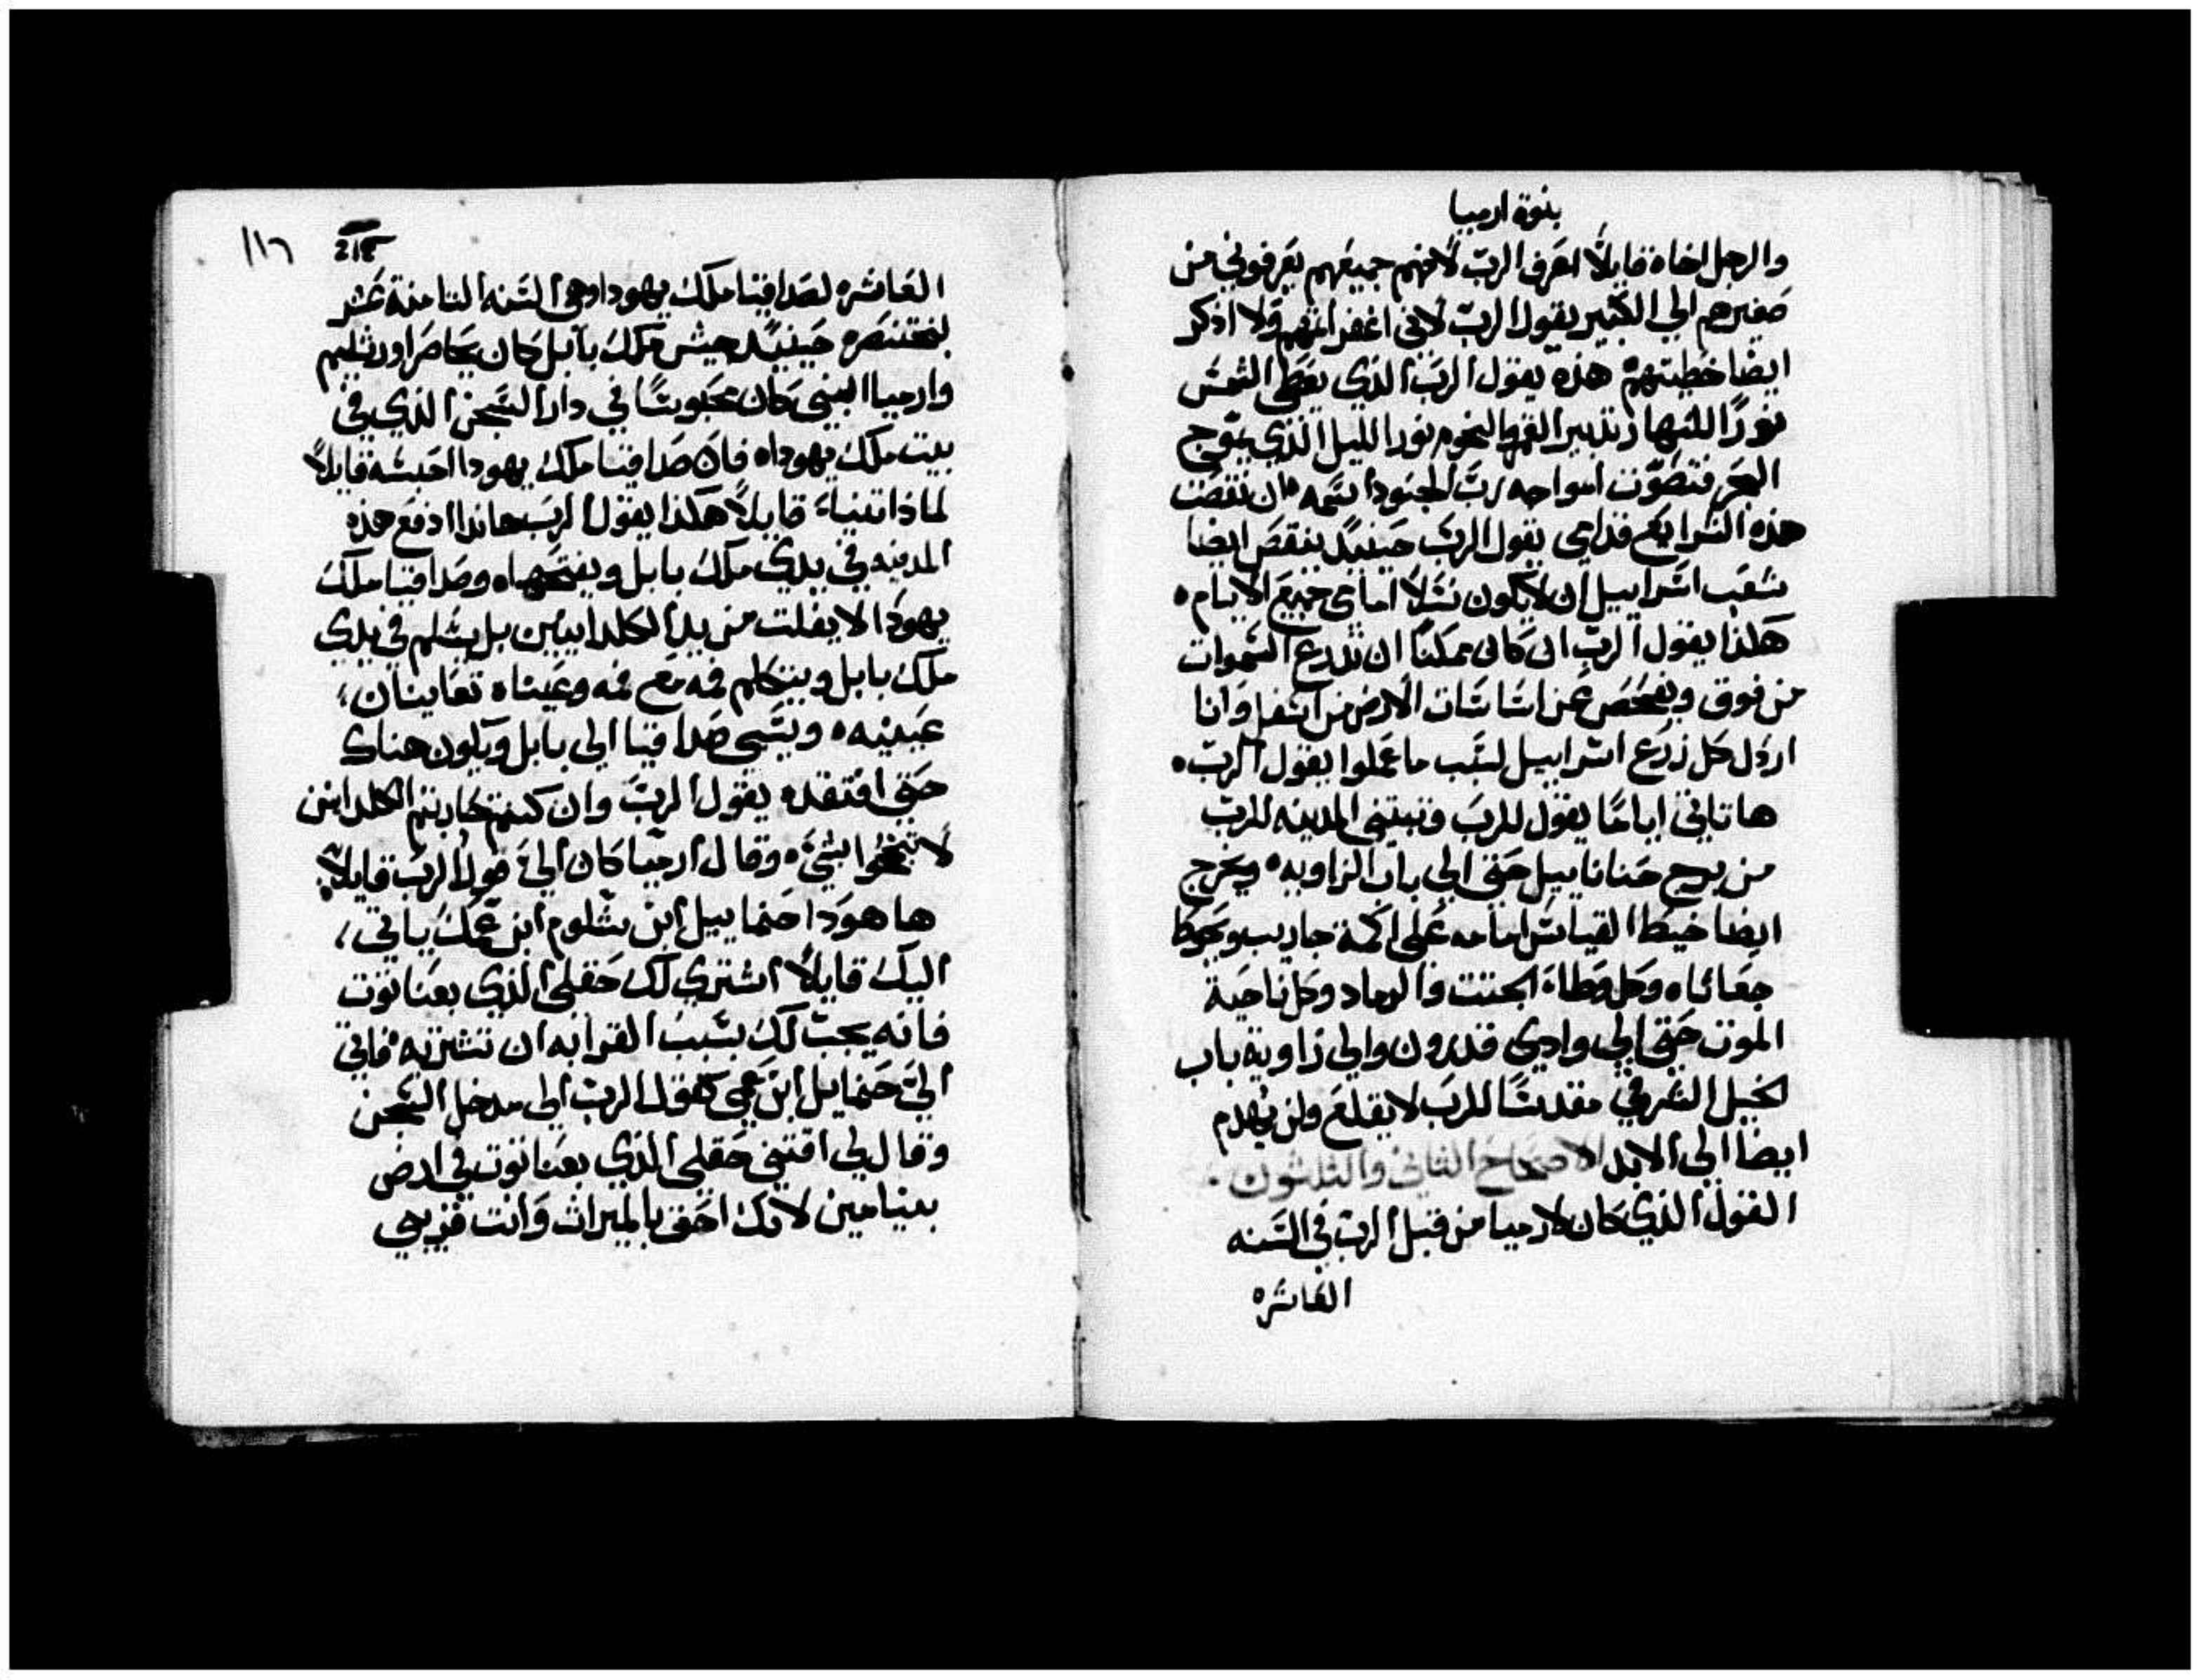 بنوة ارميا
والرجل اخاه قايلًا اعرف الرب لانهم جميعهم يعرفوني من
صغيرهم الي الكبير يقول الرب لاني اغفر اثمهم ولا اذكر
ايضا خطيتهم هذه يقول الرب الذي يعطي الشمس
نورًا للنهار تدبير القمر والنجوم نورا لليل الذي يموج
البحر فتصوت امواجه رب الجنود اسمه ان نقصت
هذه الشرايع قدامي يقول الرب حينيدٍ ينقص ايضا
شعب اسراييل ان لا يكون نسلًا امامي جميع الايام
هكذا يقول الرب ان كان ممكنًا ان تدرع السموات
من فوق ويفحص عن اساسات الارض من اسفل وانا
اردل كل زرع اسراييل لسبب ما عملوا يقول الرب
ها تاتي ايامًا يقول للرب وتبتني المدينه للرب
من برج حنانا ييل حتي الي باب الزاويه ويخرج
ايضا خيط القياس امامه علي اكمة جاريب ويحوط
جعاثاه وكل وطاء الجتت والرماد وكل ناحية
الموت حتي الي وادي قدرون والي زاوية باب
الخيل الشرقي مقدسًا للرب لا يقلع ولن يهدم
ايضا الي الابد الاصحاح الثاني والثلثون
القول الذي كان لارميا من قبل الرب في السنه
العاشره
١١٦
العاشره لصداقيا ملك يهودا وهي السنه الثامنة عشر
لبختنصر حينيدٍ جيش ملك بابل كان يحاصر اورشليم
وارميا النبي كان محبوسًا في دار السجن الذي في
بيت ملك يهودا فان صداقيا ملك يهودا احبسه قايلًا
لماذا تتنباء قايلًا هكذا يقول الرب هانذا ادفع هذه
المدينه في يدي ملك بابل ويفتحها وصداقيا ملك
يهودا لا يفلت من يد الكلدانيين بل يسلم في يدي
ملك بابل ويتكلم فمه مع فمه وعيناه تعاينان
عينيه ويسبي صداقيا الي بابل ويكون هناك
حتي افتقده يقول الرب وان كنتم تحاربتم الكلدانين
لا تنجحوا بشي وقال ارميا كان الي قول الرب قايلًا
ها هوذا حنماييل ابن شلوم ابن عمك ياتي
اليك قايلًا اشتري لك حقلي الذي بعناتوت
فانه يجب لك بسبب القرابه ان تشتريه فاتي
الي حنماييل ابن عمي كقول الرب الي مدخل السجن
وقال لي اقتني حقلي الذي بعناتوت في ارض
بنيامين لانك احق بالميراث وانت قريبي